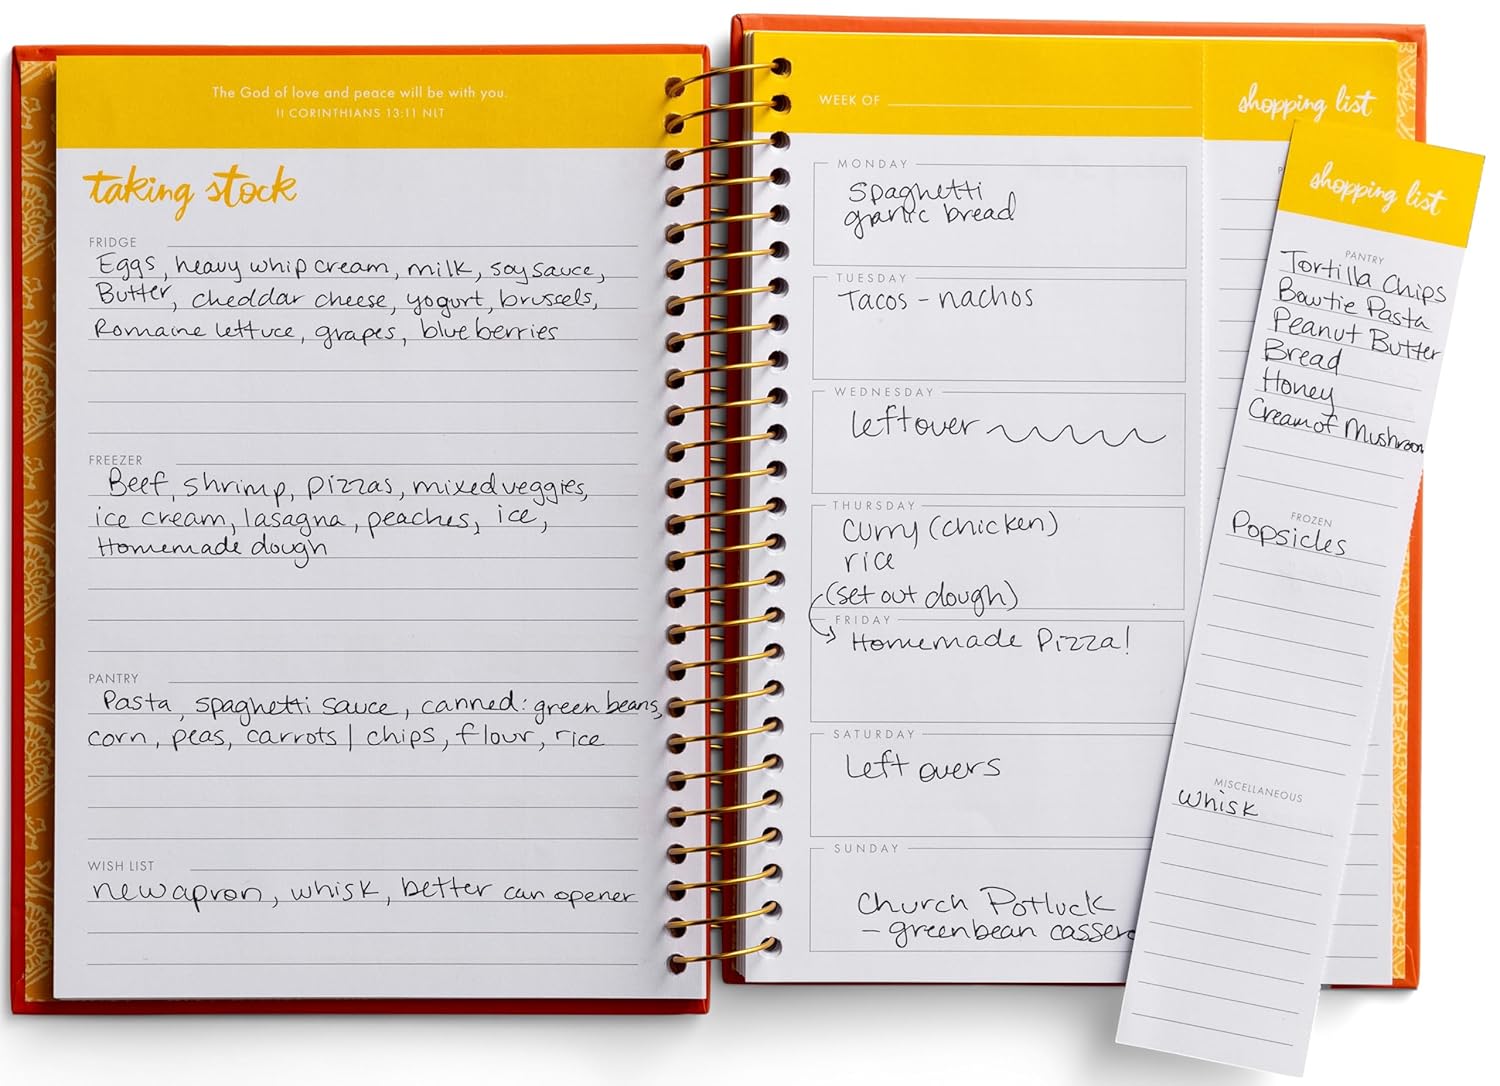 The God of love and peace will be with you.
II CORINTHIANS 13:11 NLT
taking stock
FRIDGE
Eggs, heavy whip cream, milk, soy sauce,
Butter, cheddar cheese, yogurt, brussels,
Romaine lettuce, grapes, blueberries
FREEZER
Beef, shrimp, pizzas, mixed veggies,
ice cream, lasagna, peaches, ice,
Homemade dough
PANTRY
Pasta, spaghetti sauce, canned: green beans,
corn, peas, carrots | chips, flour, rice
WISH LIST
new apron, whisk, better can opener
WEEK OF
MONDAY
spaghetti
garlic bread
TUESDAY
Tacos - nachos
WEDNESDAY
leftover
THURSDAY
Curry (chicken)
rice
(set out dough)
FRIDAY
Homemade Pizza!
SATURDAY
Left overs
SUNDAY
Church Potluck
- greenbean cassero
shopping list
P
shopping list
PANTRY
Tortilla Chips
Bowtie Pasta
Peanut Butter
Bread
Honey
Cream of Mushroom
FROZEN
Popsicles
MISCELLANEOUS
whisk